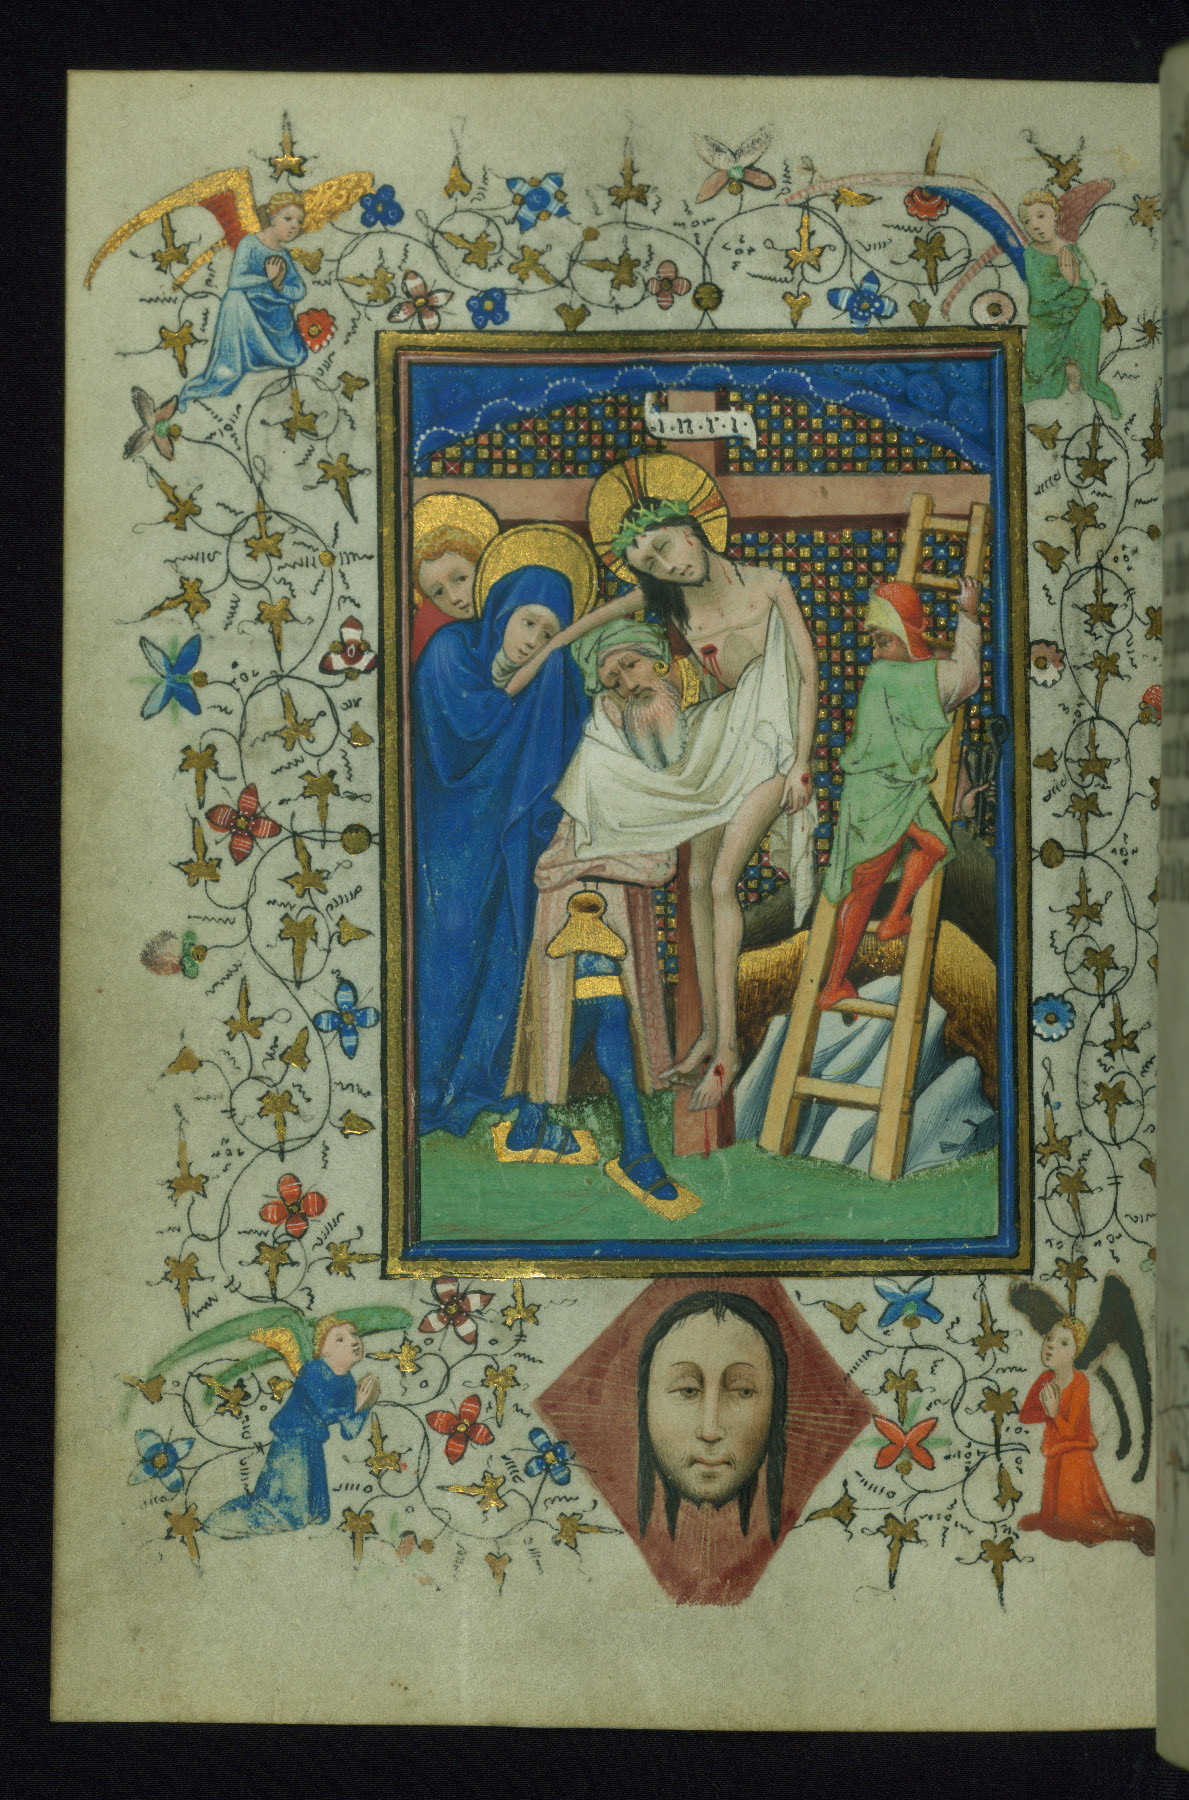 ·I·N·R·I·